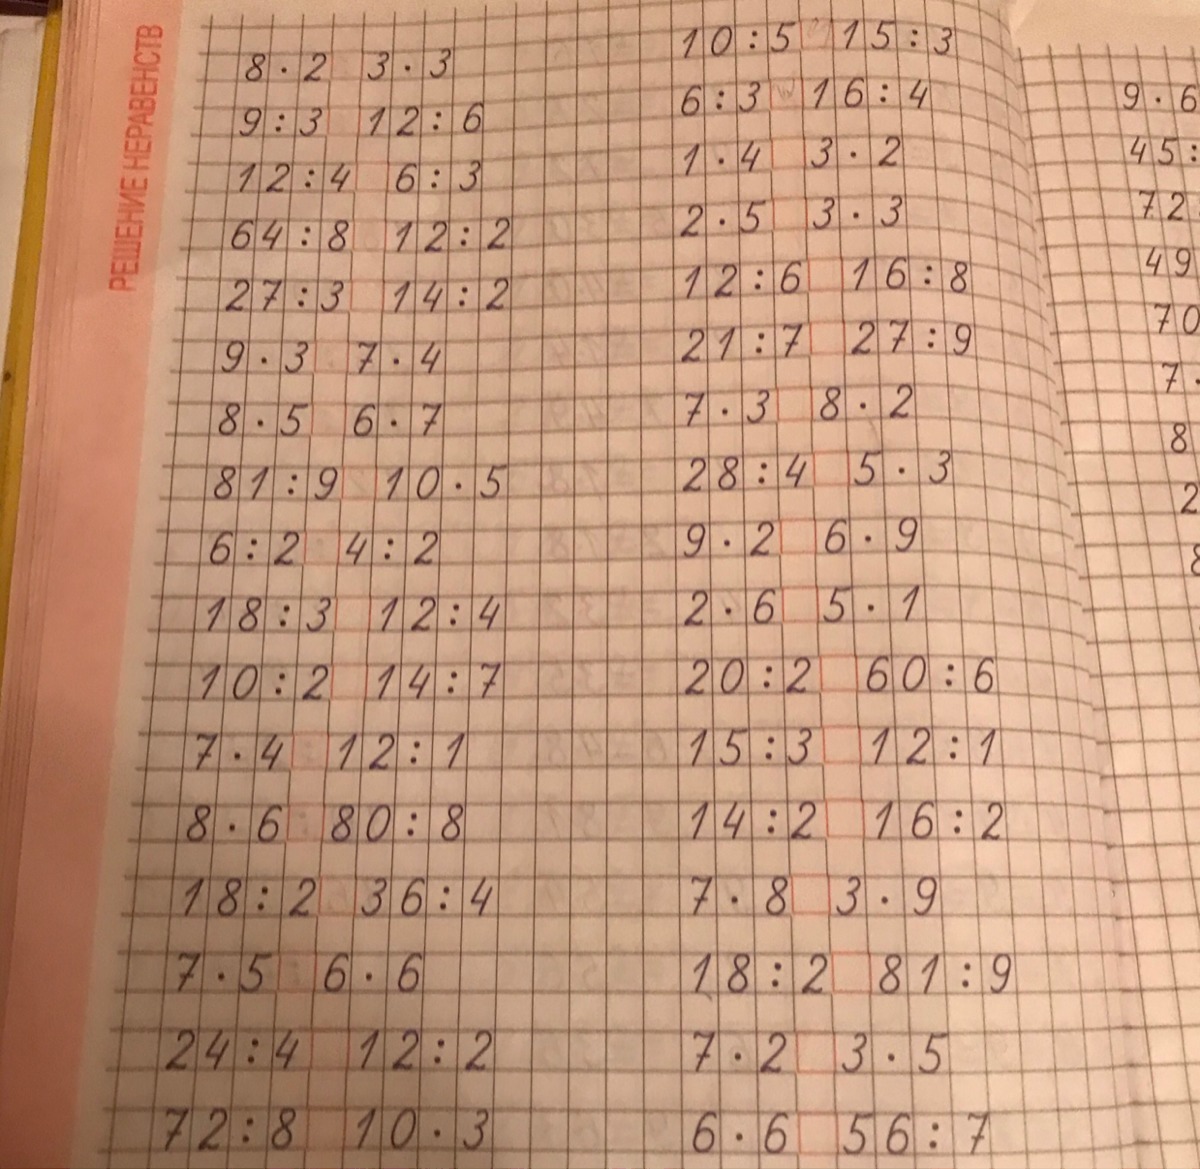 РЕШЕНИЕ НЕРАВЕНСТВ
8 · 2 3 · 3
9 : 3 12 : 6
12 : 4 6 : 3
64 : 8 12 : 2
27 : 3 14 : 2
9 · 3 7 · 4
8 · 5 6 · 7
81 : 9 10 · 5
6 : 2 4 : 2
18 : 3 12 : 4
10 : 2 14 : 7
7 · 4 12 : 1
8 · 6 80 : 8
18 : 2 36 : 4
7 · 5 6 · 6
24 : 4 12 : 2
72 : 8 10 · 3
10 : 5 15 : 3
6 : 3 16 : 4
1 · 4 3 · 2
2 · 5 3 · 3
12 : 6 16 : 8
21 : 7 27 : 9
7 · 3 8 · 2
28 : 4 5 · 3
9 · 2 6 · 9
2 · 6 5 · 1
20 : 2 60 : 6
15 : 3 12 : 1
14 : 2 16 : 2
7 · 8 3 · 9
18 : 2 81 : 9
7 · 2 3 · 5
6 · 6 56 : 7
9 · 6
45 :
72
49
70
7 ·
8
2